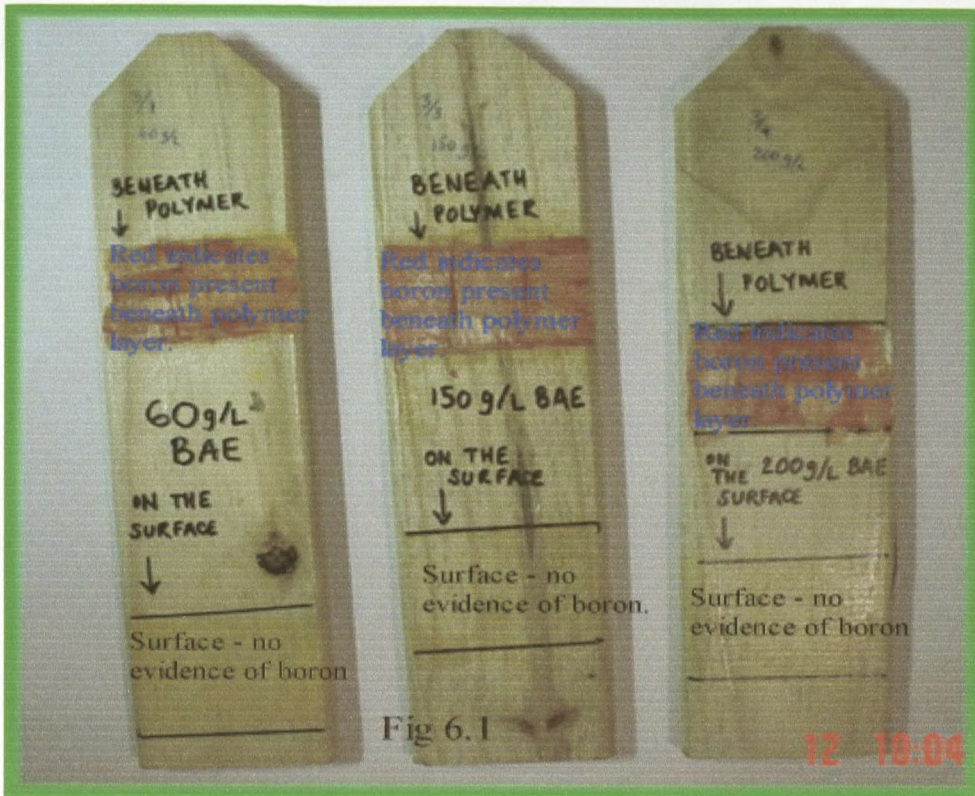 3/1
60 g/L
BENEATH
POLYMER
Red indicates
boron present
beneath polymer
layer.
60g/L
BAE
ON THE
SURFACE
Surface - no
evidence of boron
3/3
150 g
BENEATH
POLYMER
Red indicates
boron present
beneath polymer
layer.
150 g/L BAE
ON THE
SURFACE
Surface - no
evidence of boron.
200g/L
BENEATH
POLYMER
Red indicates
boron present
beneath polymer
layer.
ON
THE 200g/L BAE
SURFACE
Surface - no
evidence of boron
Fig 6.1
12 10:04